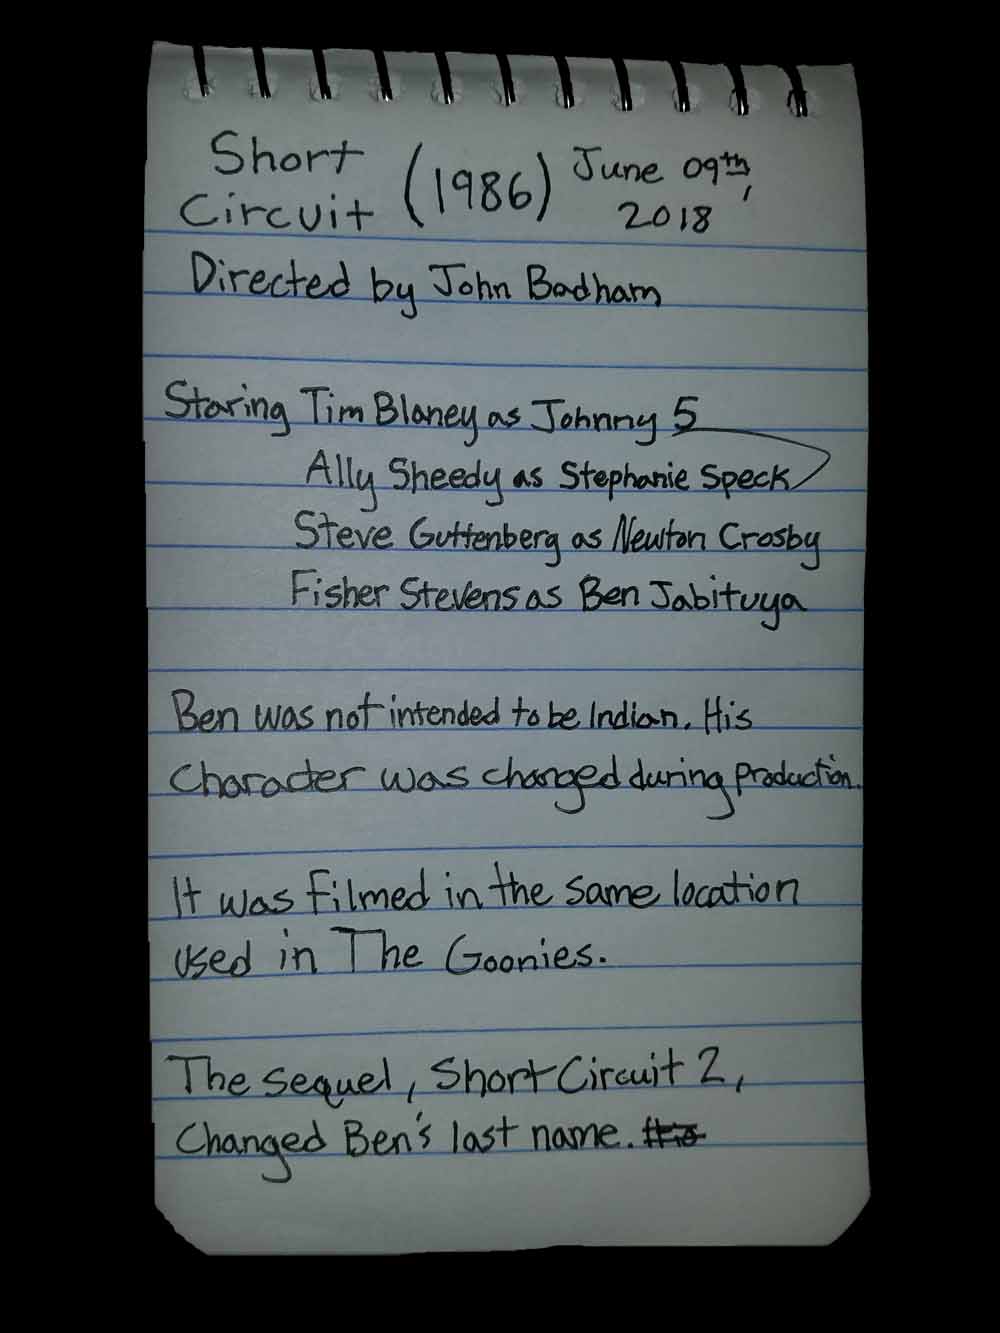 Short Circuit (1986) June 09th, 2018
Directed by John Badham
Staring Tim Blaney as Johnny 5
Ally Sheedy as Stephanie Speck
Steve Guttenberg as Newton Crosby
Fisher Stevens as Ben Jabituya
Ben was not intended to be Indian. His
Character was changed during production.
It was filmed in the same location
used in The Goonies.
The sequel, Short Circuit 2,
Changed Ben's last name.